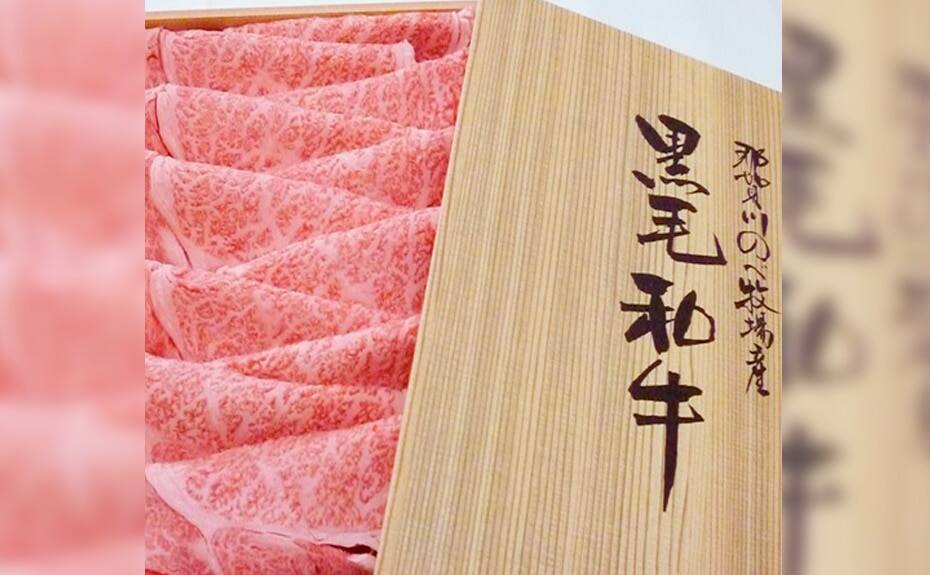 那賀川のべ牧場産
黒毛和牛